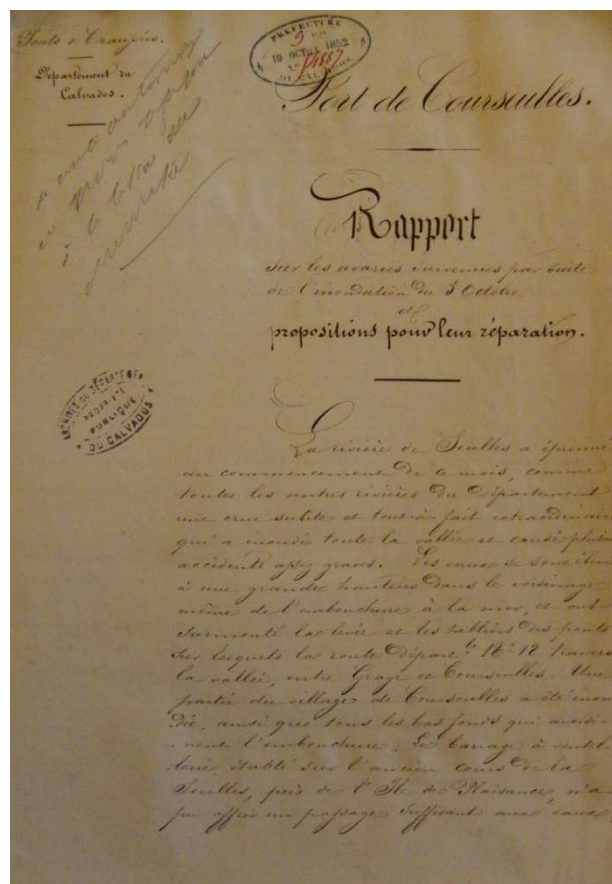 Ponts & Chaussées.
Département du
Calvados.
PRÉFECTURE
19 OCTOB. 1852
DU CALVADOS
Port de Courseulles.
Rapport
sur les avaries survenues par suite
de l'inondation du 5 Octobre
et
propositions pour leur réparation.
ARCHIVES DU DÉPARTEMENT
PROPRIÉTÉ
PUBLIQUE
DU CALVADOS
La rivière de Seulles a éprouvé
au commencement de ce mois, comme
toutes les autres rivières du Département
une crue subite et tout à fait extraordinaire
qui a inondé toute la vallée et causé plusieurs
accidents assez graves. Les eaux se sont
à une grande hauteur dans le voisinage
même de l'embouchure à la mer, et ont
surmonté la levée et les tabliers des ponts
sur lesquels la route Départ.le N.o 12 traverse
la vallée, entre Graye et Courseulles. Une
partie du village de Courseulles a été inon
dée, ainsi que tous les bas fonds qui avoisi-
-nent l'embouchure. Le barrage à
établi sur l'ancien cours de la
Seulles, près de l'Ile de Plaisance, n'a
pu offrir un passage suffisant aux eaux,